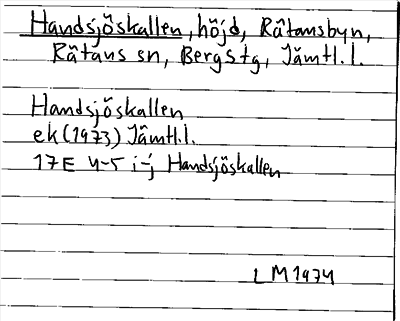 Handsjöskallen, höjd, Råtansbyn,
Råtans sn, Bergs tg, Jämtl.l.
Handsjöskallen
ek (1973) Jämtl.l.
17E 4-5 i-j Handsjöskallen
LM 1974